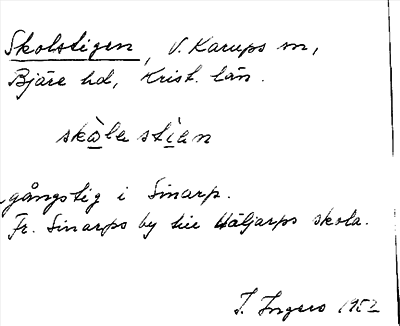 Skolstigen, V. Karups sn,
Bjäre hd, Krist. län.
skåla stian
gångstig i Sinarp.
Fr. Sinarps by till Häljarps skola.
I. Ingers 1952